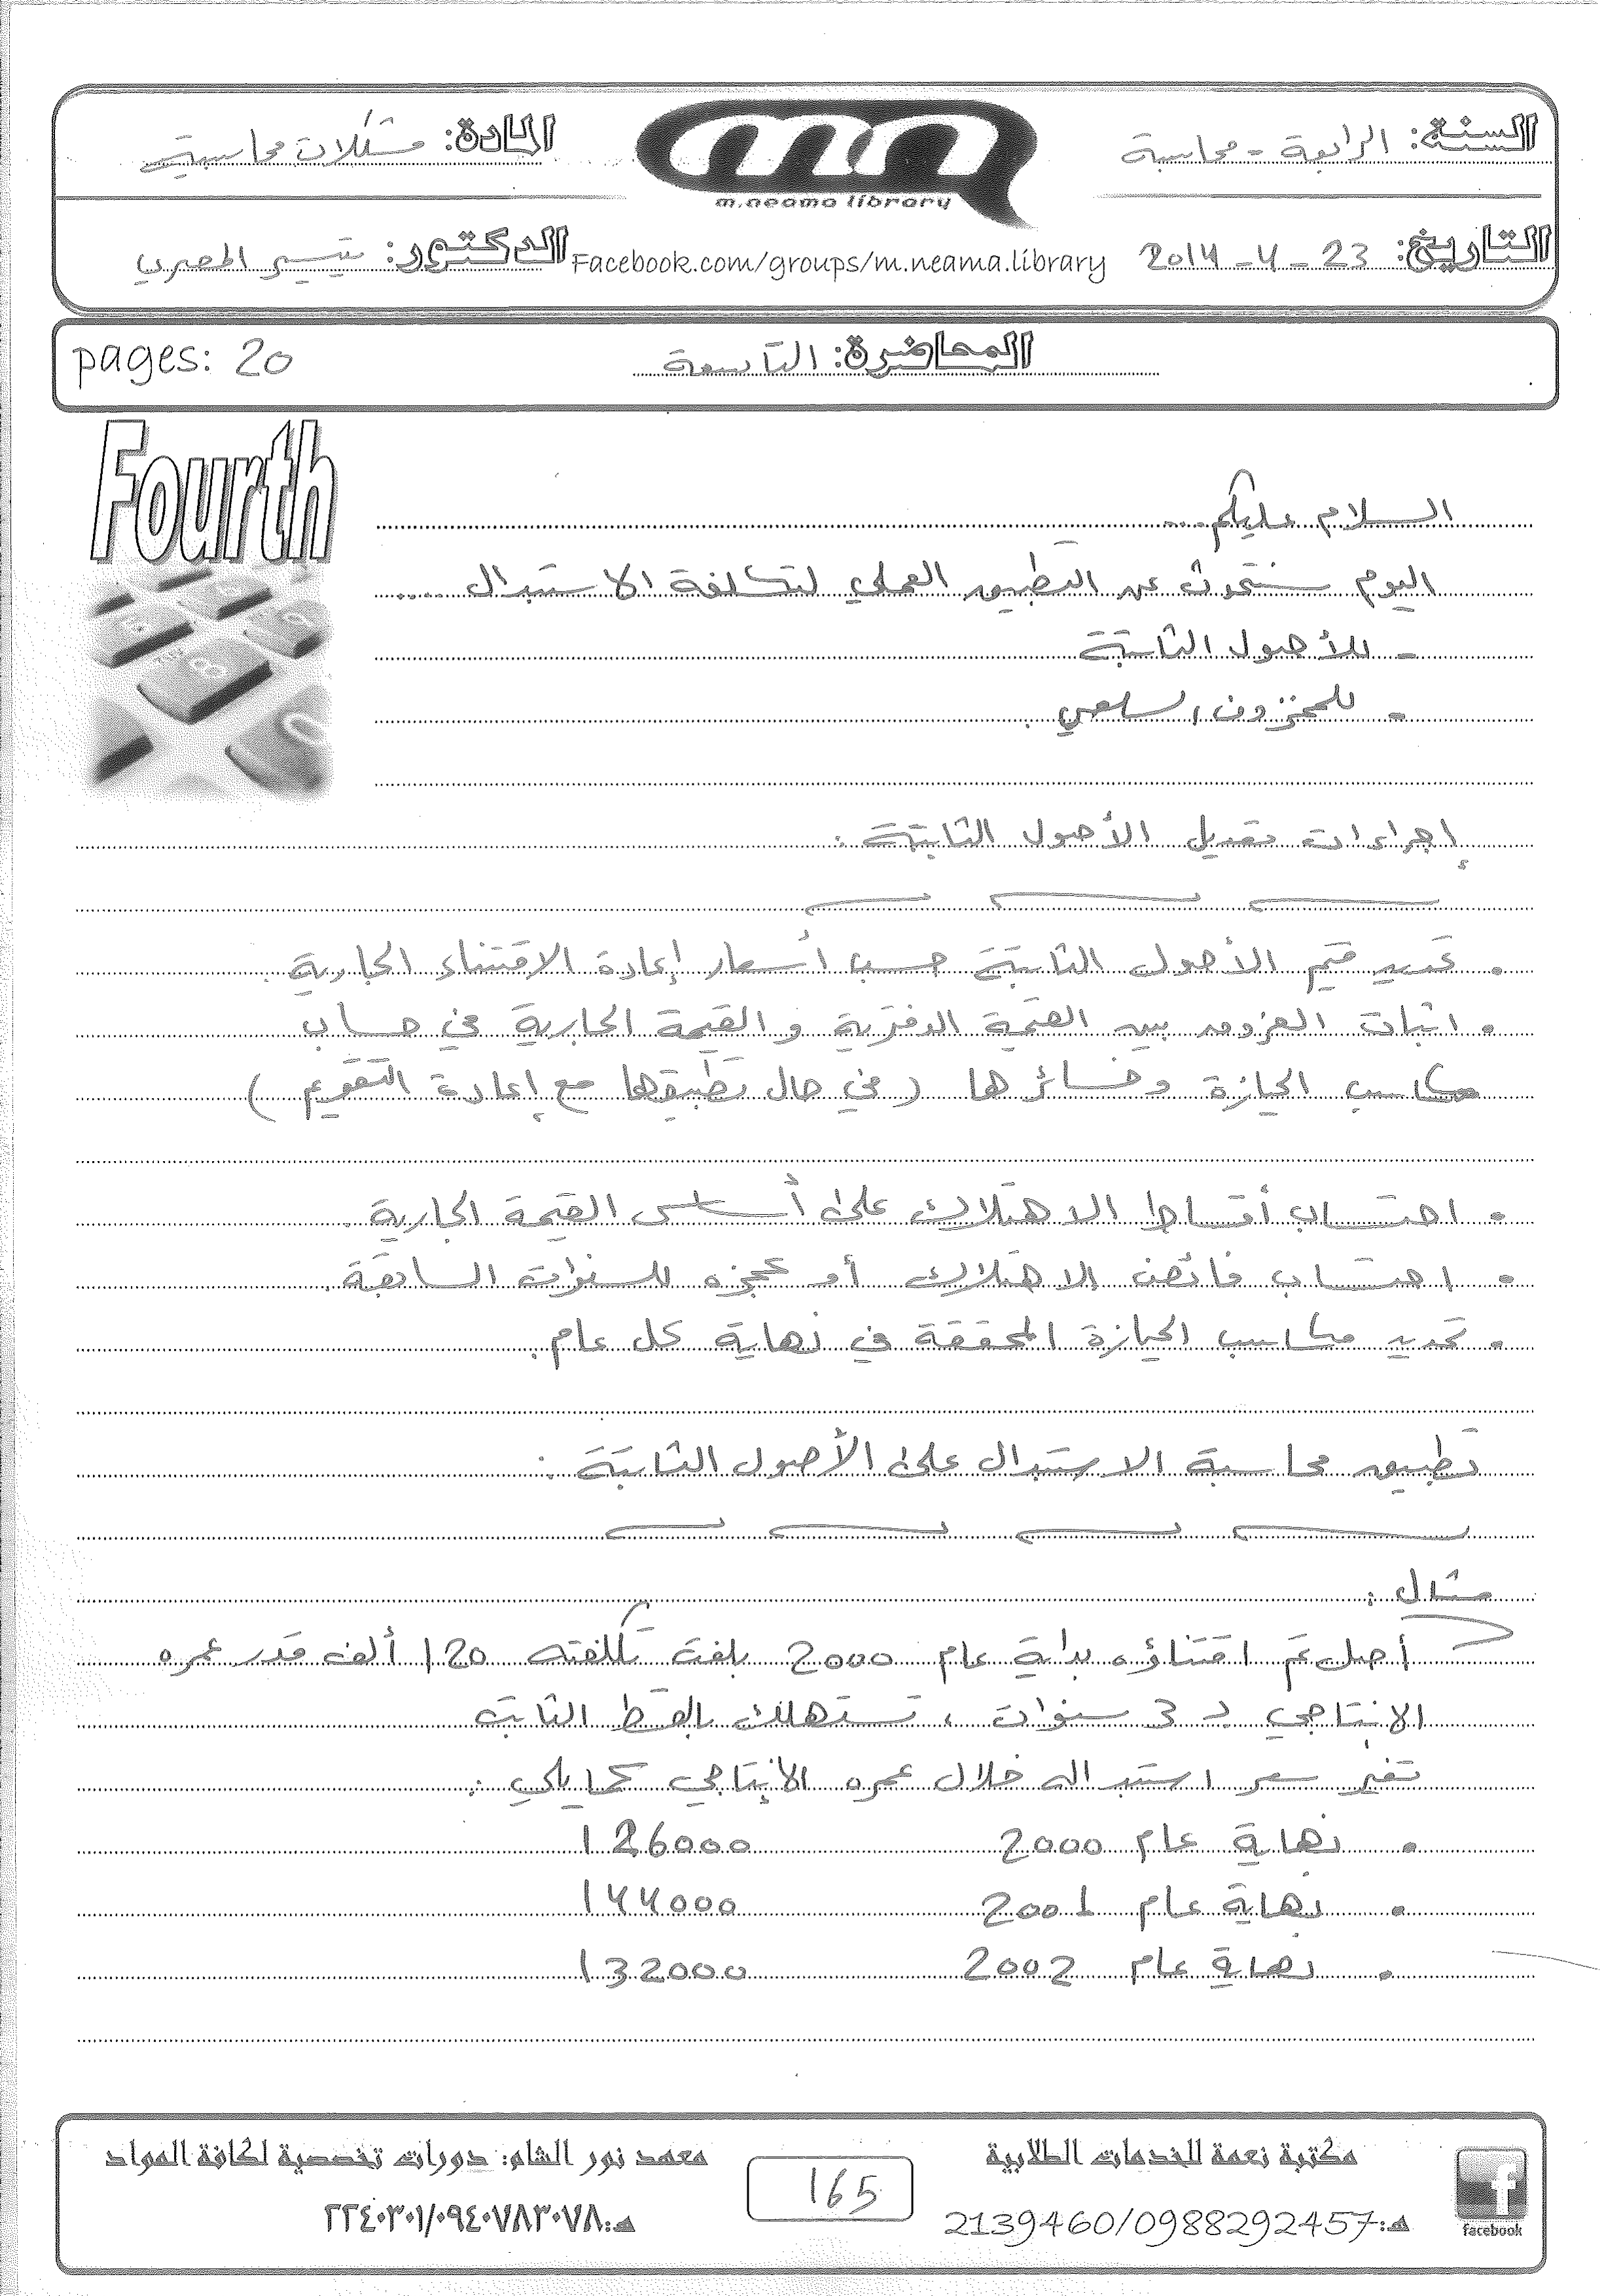 السنة: الرابعة - محاسبة
المادة: مشكلات محاسبية
m.neama library
التاريخ: 23 - 4 - 2014
Facebook.com/groups/m.neama.library
الدكتور: تيسير المصري
المحاضرة: التاسعة
pages: 20
Fourth
السلام عليكم ...
اليوم سنتحدث عن التطبيق العملي لتكلفة الاستبدال .....
- للأصول الثابتة
- للمخزون السلعي .
إجراءات تعديل الأصول الثابتة :
• تحديد قيم الأصول الثابتة حسب أسعار إعادة الاقتناء الجارية .
• اثبات الفروق بين القيمة الدفترية والقيمة الجارية في حساب
مكاسب الحيازة وخسائرها ( في حال تطبيقها مع إعادة التقويم )
• احتساب أقساط الاهتلاك على أساس القيمة الجارية .
• احتساب فائض الاهتلاك أو عجزه للسنوات السابقة .
• تحديد مكاسب الحيازة المحققة في نهاية كل عام .
تطبيق محاسبة الاستبدال على الأصول الثابتة :
مثال :
أصل تم اقتناؤه بداية عام 2000 بلغت تكلفته 120 ألف قدر عمره
الانتاجي بـ 3 سنوات ، تستهلك بالقسط الثابت
تغير سعر استبداله خلال عمره الانتاجي كمايلي :
• نهاية عام 2000 126000
• نهاية عام 2001 144000
• نهاية عام 2002 132000
مكتبة نعمة للخدمات الطلابية
هـ: 2139460/0988292457
facebook
165
معهد نور الشام: دورات تخصصية لكافة المواد
هـ: ٢٢٤٠٣٠١/٠٩٤٠٧٨٣٠٧٨